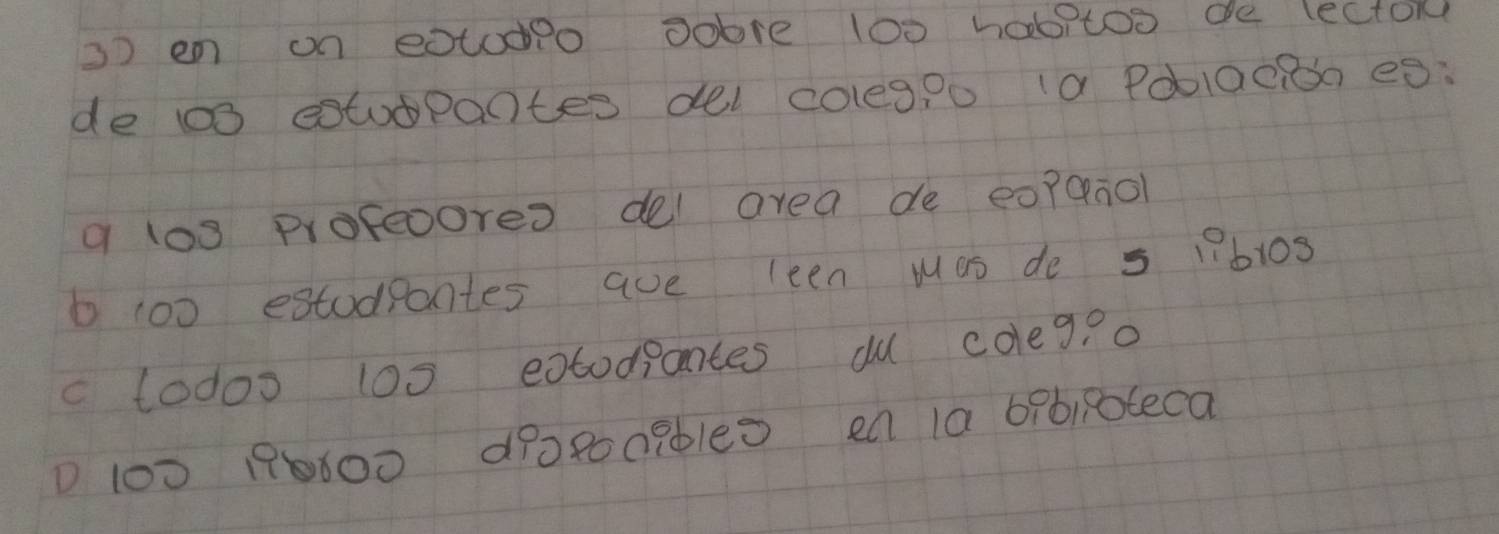 3) en un estudio sobre los habitos de lectora
de los estudiantes del colegio la Población es:
a los Profesores del area de español
b los estudiantes que leen mas de 5 libros
c todos los estudiantes del colegio
D los libros disponibles en la biblioteca